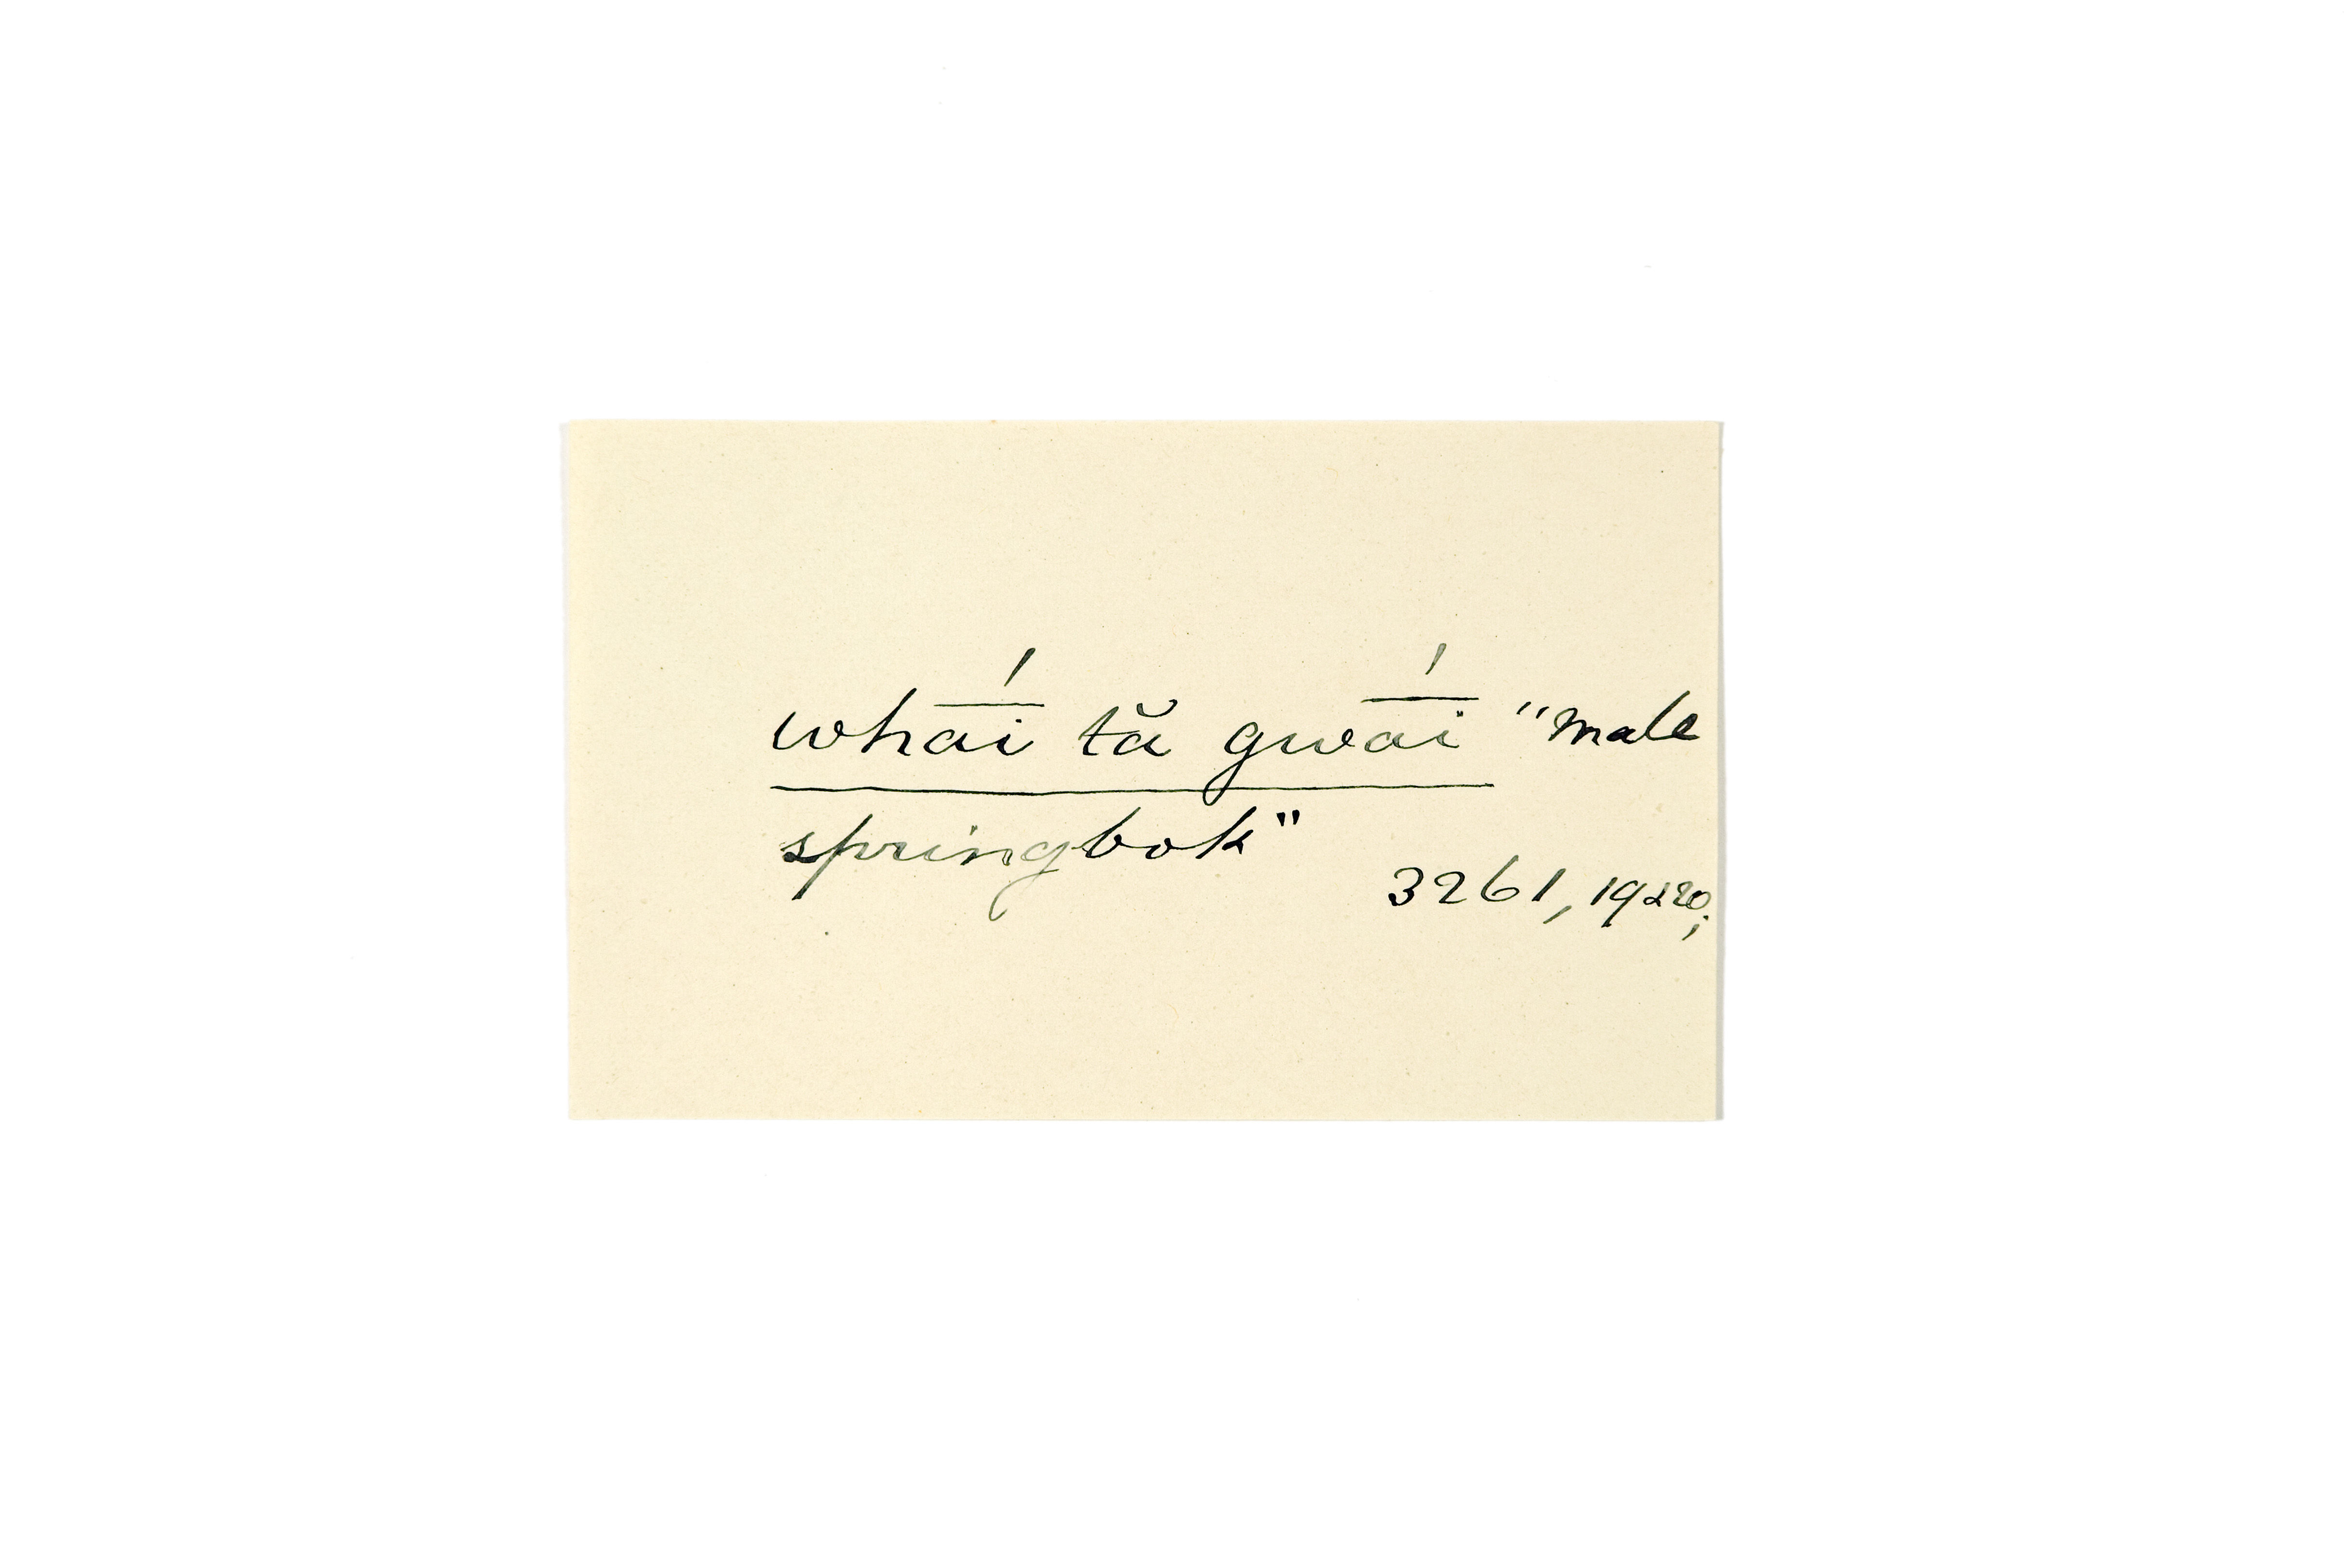 whā́i tă gwā́i "male
springbok"
3261,